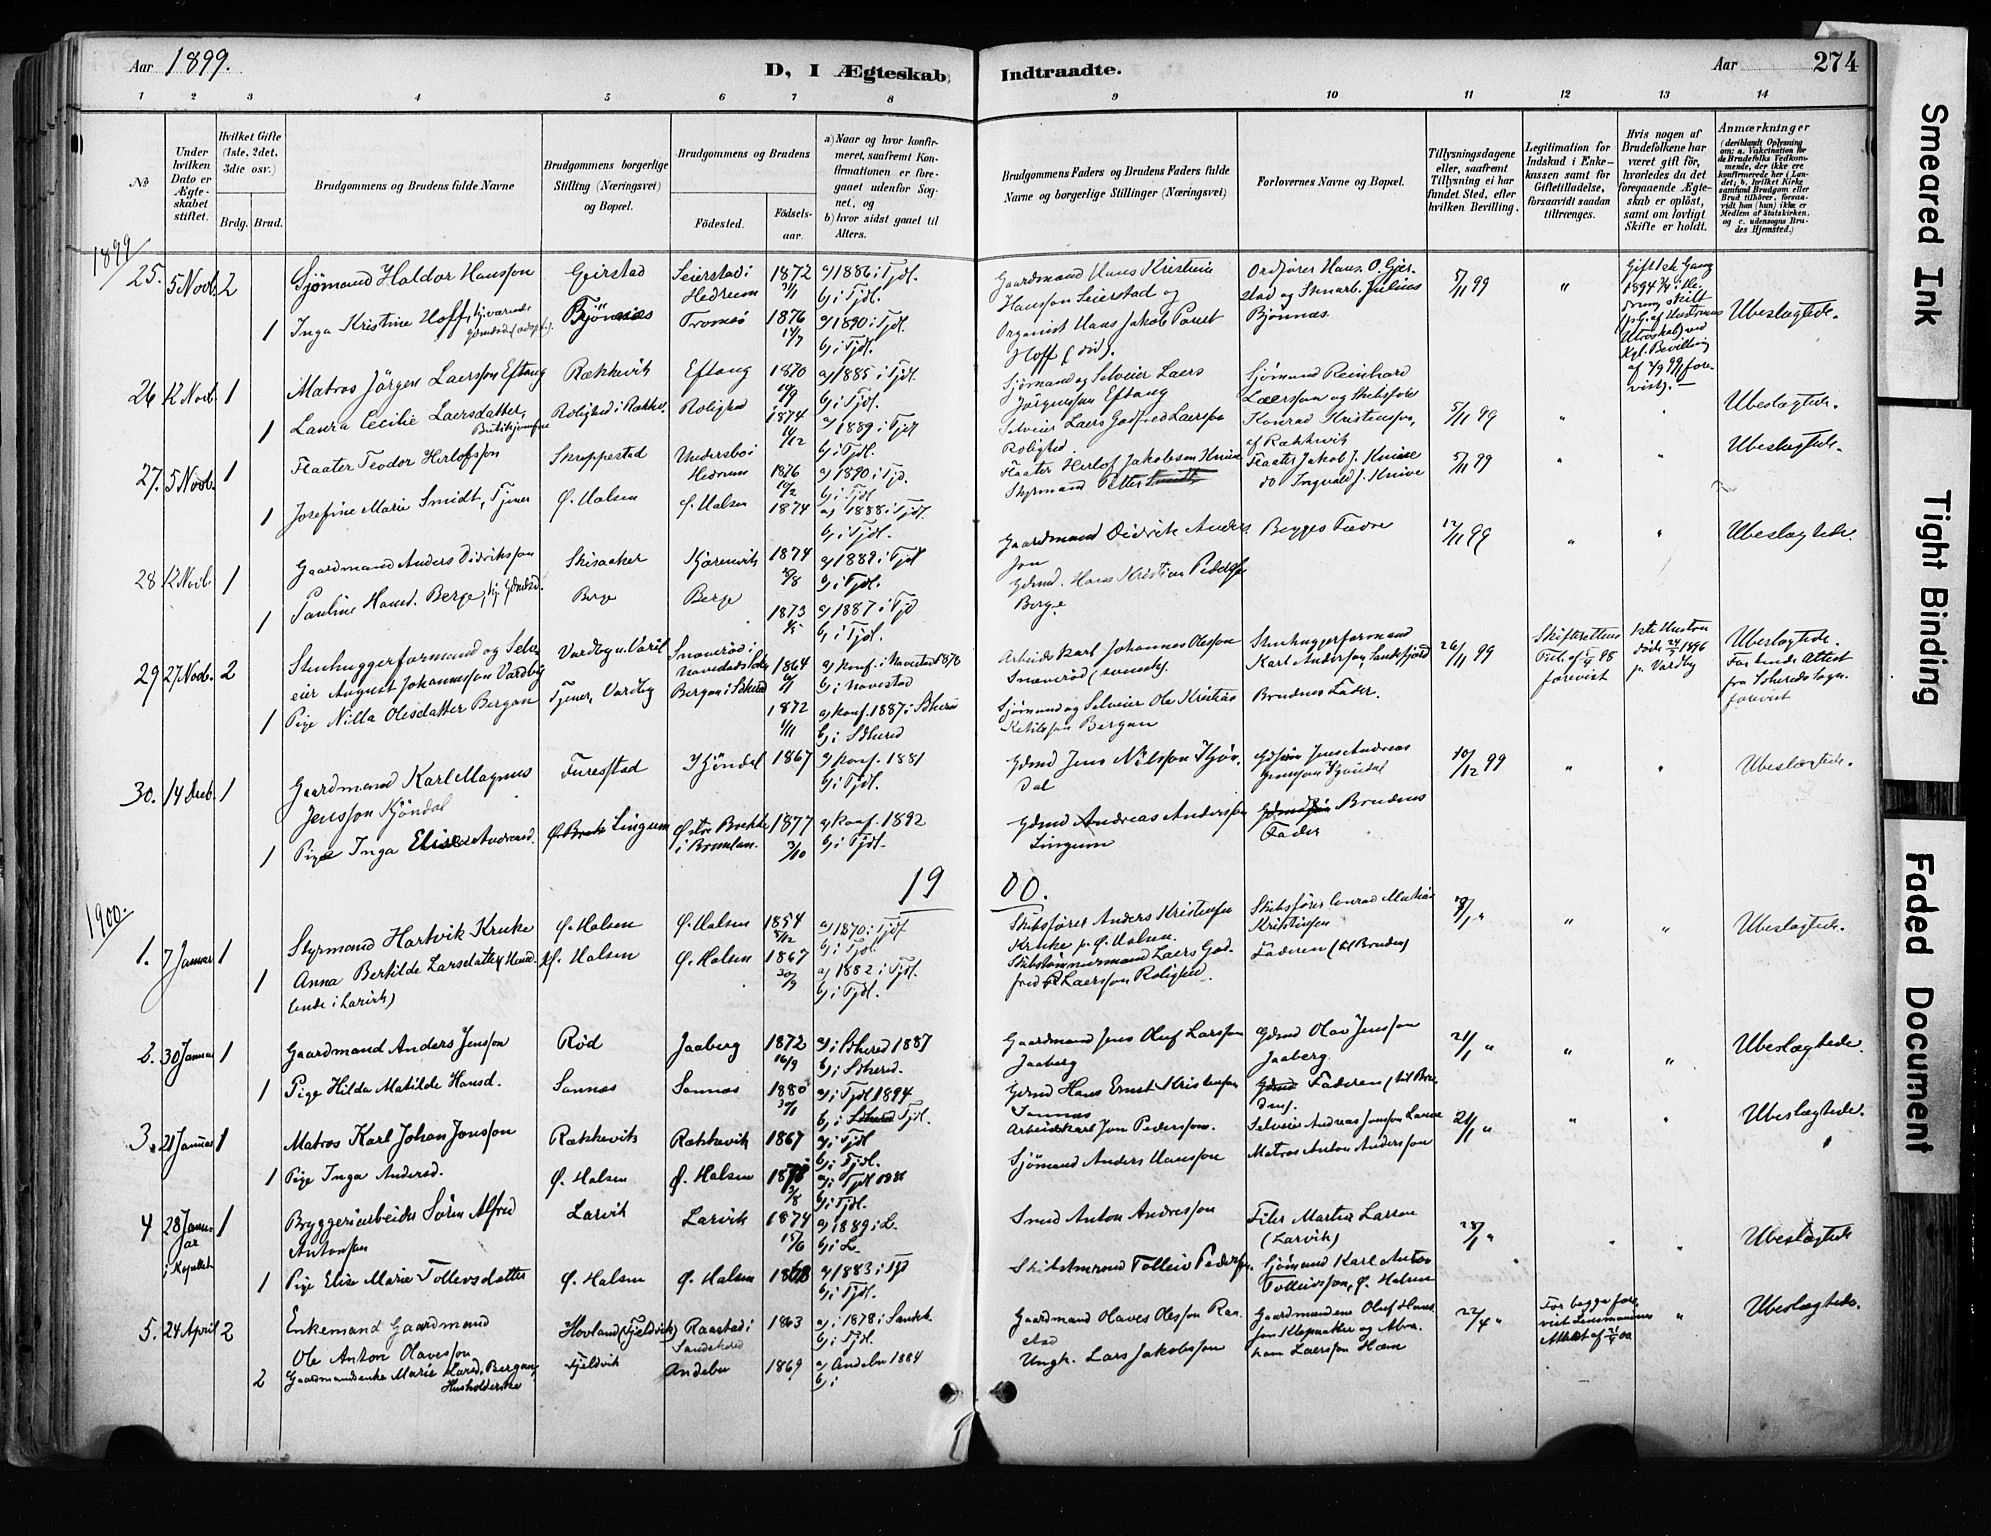 Aar 1899.
D, I Ægteskab Indtraadte.
Aar
274
1 2 3 4 5 6 7 8 9 10 11 12 13 14
No
Under hvilken Dato er Ægteskabet stiftet.
Hvilket Gifte (1ste, 2det, 3die osv.)
Brdg. Brud.
Brudgommens og Brudens fulde Navne
Brudgommens borgerlige Stilling (Næringsvei) og Bopæl.
Brudgommens og Brudens
Fødested.
Fødselsaar.
a) Naar og hvor konfirmeret, saafremt Konfirmationen er foregaaet udenfor Sognet, og
b) hvor sidst gaaet til Alters.
Brudgommens Faders og Brudens Faders fulde Navne og borgerlige Stillinger (Næringsvei)
Forlovernes Navne og Bopæl.
Tillysningsdagene eller, saafremt Tillysning ei har fundet Sted, efter hvilken Bevilling.
Legitimation for Indskud i Enkekassen samt for Giftetilladelse, forsaavidt saadan tiltrænges.
Hvis nogen af Brudefolkene har været gift før, hvorledes da det foregaaende Ægteskab er opløst, samt om lovligt Skifte er holdt.
Anmærkninger (deriblandt Oplysning om: a. Vakcination for de Brudefolks Vedkommende, der ikke ere konfirmerede her i Landet; b. hvilket Kirkesamfund Brudgom eller Brud tilhører, forsaavidt han (hun) ikke er Medlem af Statskirken, og c. udensogns Brudes Hjemsted.)
1899
25. 5 Novb. 2 Sjømand Haldor Hansson Geirstad Seierstad i Hedrum 1872 a) 1886 i Tjdl. b) i Tjdl. Gaardmand Hans Kristian Hansson Seierstad og Ordfører Hans O. Gjerstad og Stenarb. Julius Bjønnes. 5/11 99 " Gift 1ste Gang 1894 Ubeslægtede.
1 Inga Kristine Hoff, Bjönnes Tromsø 1876 a) 1890 i Tjdl. b) i Tjdl. Organist Hans Jakob Hoff
26 12 Novb. 1 Matros Jörgen Laersson Eftang Rækkevik Eftang 1870 a) 1885 i Tjdl. b) i Tjdl. Sjømand og Selveier Laers Jörgensson Eftang Sjømand Reinhard Laersson og Skibsfører Konrad Kristensson, af Rækkevik 5/11 99 " " Ubeslægtede.
1 Laura Cecilie Laersdatter, Rolighed i Rækkev. Rolighed 1874 14/12 a) 1889 i Tjdl b) i Tjdl. Selveier Laers Godfred Laersson Rolighed.
27. 5 Novb. 1 Flaater Teodor Herlofsson Skreppestad Undersbo i Hedrum 1876 10/2 a) 1890 i Tjd. b) i Tjdl Flaater Herlof Jakobsson Knive Flaater Jakob J. Knive do Ingvald J. Knive 5/11 99 " " Ubeslægtede.
1 Josefine Marie Smidt, Tjener Ø. Halsen Ø. Halsen 1874 a) 1888 i Tjdl. b) i Tjdl. Styrmand Petter Smidt
28 12 Novb 1 Gaardmand Anders Didriksson Skisaaker Kjærenvik 1874 a) 1889 i Tjdl b) i Tjdl. Gaardmand Didrik Andersson Begges Fædre 12/11 99 " " Ubeslægtede.
1 Pauline Hansd. Berge, Berge Berge 1873 a) 1887 i Tjd b) i Tjdl. Gdmd. Hans Kristian Pedersen Berge
29 27 Novb. 2 Stenhuggerformand og Selveier August Johannesson Vardby Snoverød i 1864 a) konf. i Navestad 1878 b) i Navestad Arbeidskarl Johannes Olesson Snoverød (svensk). Stenhuggerformand Karl Andersson, Sandefjord 26/11 99 Skifterettens forevist 1ste Hustru døde 1896 p. Vardby Ubeslægtede. Forevist
1 Pige Nilla Olesdatter Bergan Tjener, Vardby Bergan i Sdherred 1872 1/11 a) konf. 1887 i Sdherred b) i Sdherred Sjømand og Selveier Ole Kristian Ketilsson Bergan Brudens Fader.
30. 14 Decb. 1 Gaardmand Karl Magnus Jensson Kjöndal Furestad Kjöndal 1867 a) konf. 1881 b) i Tjdl. Gdmd Jens Nilsson Kjöndal Jens Andreas Jensson Kjöndal 10/12 99 " " Ubeslægtede.
1 Pige Inga Elise Andreasd. Lingum Østre Brekke i Brunlan. 1877 3/10 a) konf. 1892 b) i Tjdl. Gdmd Andreas Andersson Lingum Brudens Fader
1900.
1900.
1. 7 Januar 1 Styrmand Hartvik Kruke Ø. Halsen Ø. Halsen 1854 5/12 a) 1870 i Tjdl b) i Tjdl Skibsfører Anders Kristensen Kruke p. Ø. Halsen. Skibsfører Conrad Mathias Kristensen " " " Ubeslægtede.
1 Anna Bertilde Larsdatter Ø. Halsen Ø. Halsen 1867 30/9 a) 1882 i Tjdl. b) i Tjdl. Skibstømmermand Laers Godfred Laersson Rolighed. Faderen (til Bruden)
2. 30 Januar 1 Gaardmand Anders Jensson Rød Jaaberg 1872 16/9 a) i Sdherred 1887 b) i Sdherred. Gaardmand Jens Oluf Larsson Jaaberg Gdmd Olav Jensson Jaaberg. 21/1 " " " Ubeslægtede.
1 Pige Hilda Matilde Hansd. Sannes Sannes 1880 30/1 a) i Tjdl 1894 b) i Tjdl. Gdmd Hans Ernst Kristensson Sannes Faderen (til Bruden).
3. 21 Januar 1 Matros Karl Johan Jonsson Rækkevik Rækkevik 1867 a) i Tjdl b) i Tjdl. Arbeidskarl Jon Pedersson. Selveier Andreas Jonsson 21/1 " " " Ubeslægtede.
1 Pige Inga Andersd. Ø. Halsen Ø. Halsen a) i Tjdl b) i Tjdl. Sjømand Anders Hansson Matros Anton Andersson
4 28 Januar i Kapellet 1 Bryggeriarbeider Sören Alfred Antonsen Larvik Larvik 1874 15/6 a) 1889 i L. b) i L. Smed Anton Andresson Filer Martin Larsen (Larvik) 28/1 " " " Ubeslægtede
1 Pige Elise Marie Tollevsdatter Ø. Halsen Ø. Halsen 1868 a) 1883 i Tjd b) i Tjdl. Tolleiv Pedersson. Sjømand Karl Anton Tolleivsson, Ø. Halsen
5. 24 April 2 Enkemand Gaardmand Ole Anton Olavesson Hovland (Fjeldvik) Raastad i Sandeherred 1863 a) i 1878 i Sandeh. b) i Tjdl. Gaardmand Olaves Olesson Raastad Gaardmændene Oluf Hansson Klepaaker og Abraham Laersson Hæm 22/4 " For begge forevist Lensmandens Attest af 21/4 00 " Ubeslægtede.
2 Gaardmandsenke Marie Larsd. Bergan, Husholderske Fjeldvik Andebu 1869 a) Andebu 1884 b) i Ungk. Lars Jakobsson
Smeared Ink
Tight Binding
Faded Document